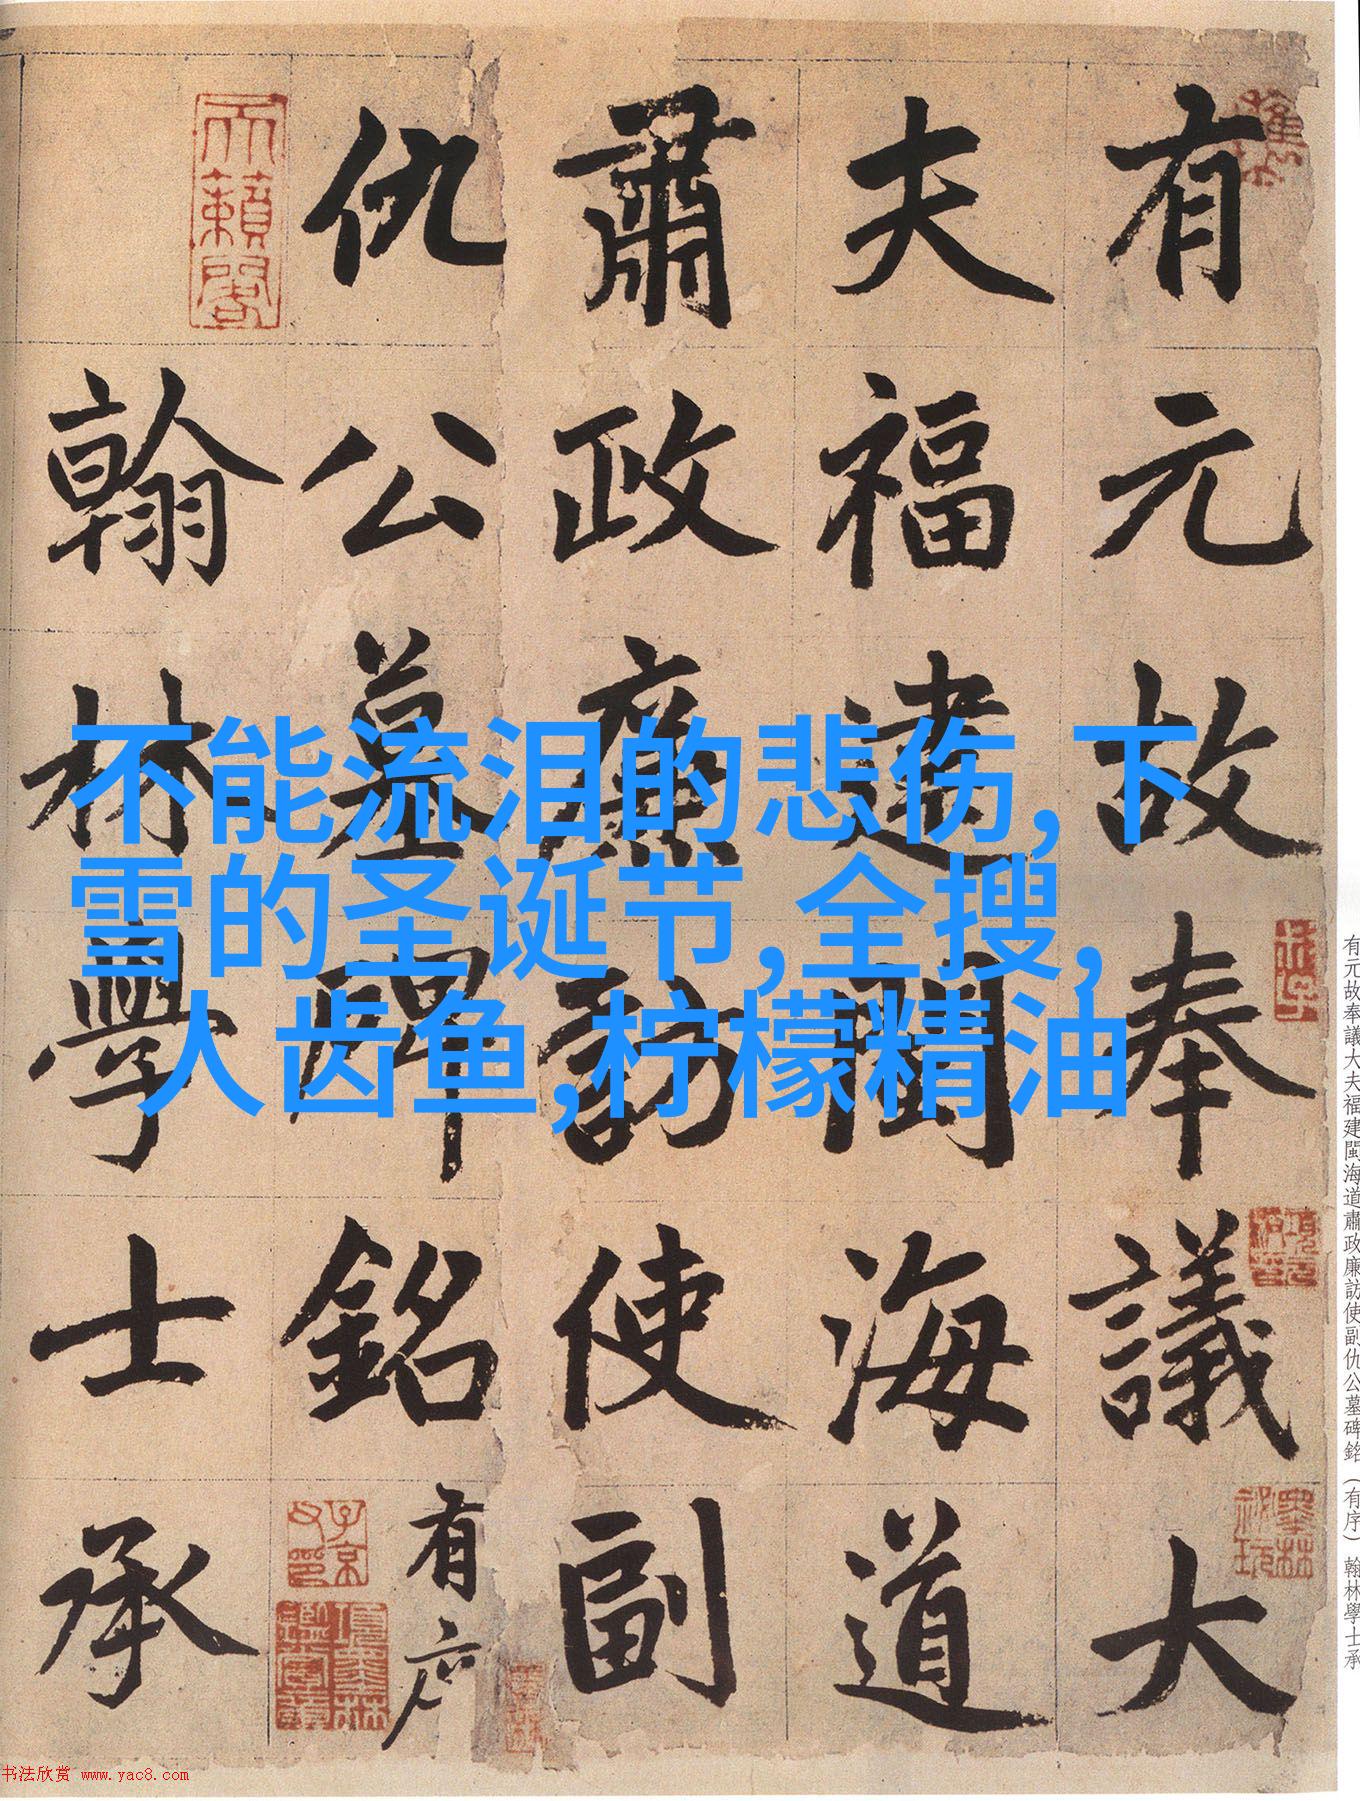 有元故奉議大
夫福建閩海道
肅政廉訪使副
仇公墓碑銘有序
翰林學士承
天籟閣
子京父印
墨林祕玩
不能流泪的悲伤,下
雪的圣诞节,全搜,
人齿鱼,柠檬精油
有元故奉議大夫福建閩海道肅政廉訪使副仇公墓碑銘（有序）翰林學士承
书法欣赏 www.yac8.com